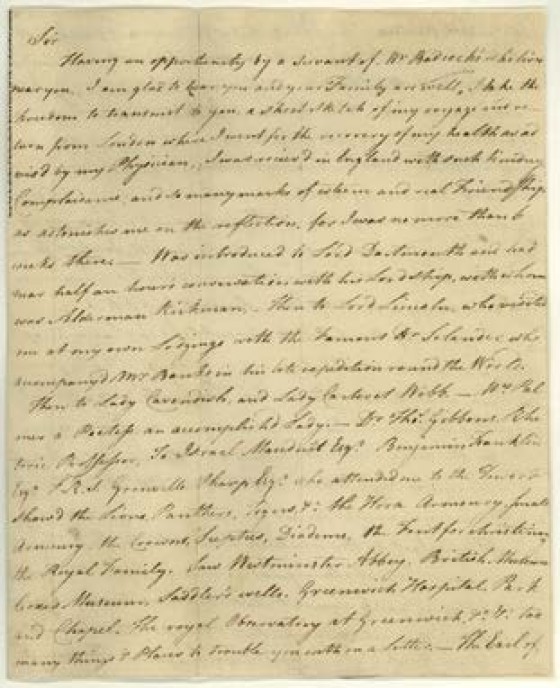 Sir
Having an opportunity by a Servant of Mr Badcock's who lives
near you, I am glad to hear you and your Family are well, I take the
freedom to transmit to you, a short sketch of my voyage and re-
turn from London where I went for the recovery of my health as ad-
vis'd by my Physician, I was reciev'd in England with such kindness
Complaisance, and so many marks of esteem and real Friendship
as astonishes me on the reflection, for I was no more than 6
weeks there. — Was introduced to Lord Dartmouth and had
near half an hours conversation with his Lordship, with whom
was Alderman Kirkman, — Then to Lord Lincoln, who visited
me at my own Lodgings with the Famous Dr Solander, who
accompany'd Mr Banks in his late expedition round the World.
Then to Lady Cavendish, and Lady Carteret Webb — Mrs Pal-
mer a Poetess an accomplish'd Lady. — Dr Thos. Gibbons, Rhe-
toric Proffesor, To Israel Mauduit Esqr. Benjamin Franklin
Esqr. F.R.S. Grenville Sharp Esqr. who attended me to the Tower &
show'd the Lions, Panthers, Tigers, &c. the Horse Armoury, Small
Armoury, the Crowns, Sceptres, Diadems, the Font for christening
the Royal Family. Saw Westminster Abbey, British Museum
Coxe's Museum, Saddler's wells, Greenwich Hospital, Park
and Chapel, The royal Observatory at Greenwich, &c. &c. too
many things & Places to trouble you with in a Letter. — The Earl of